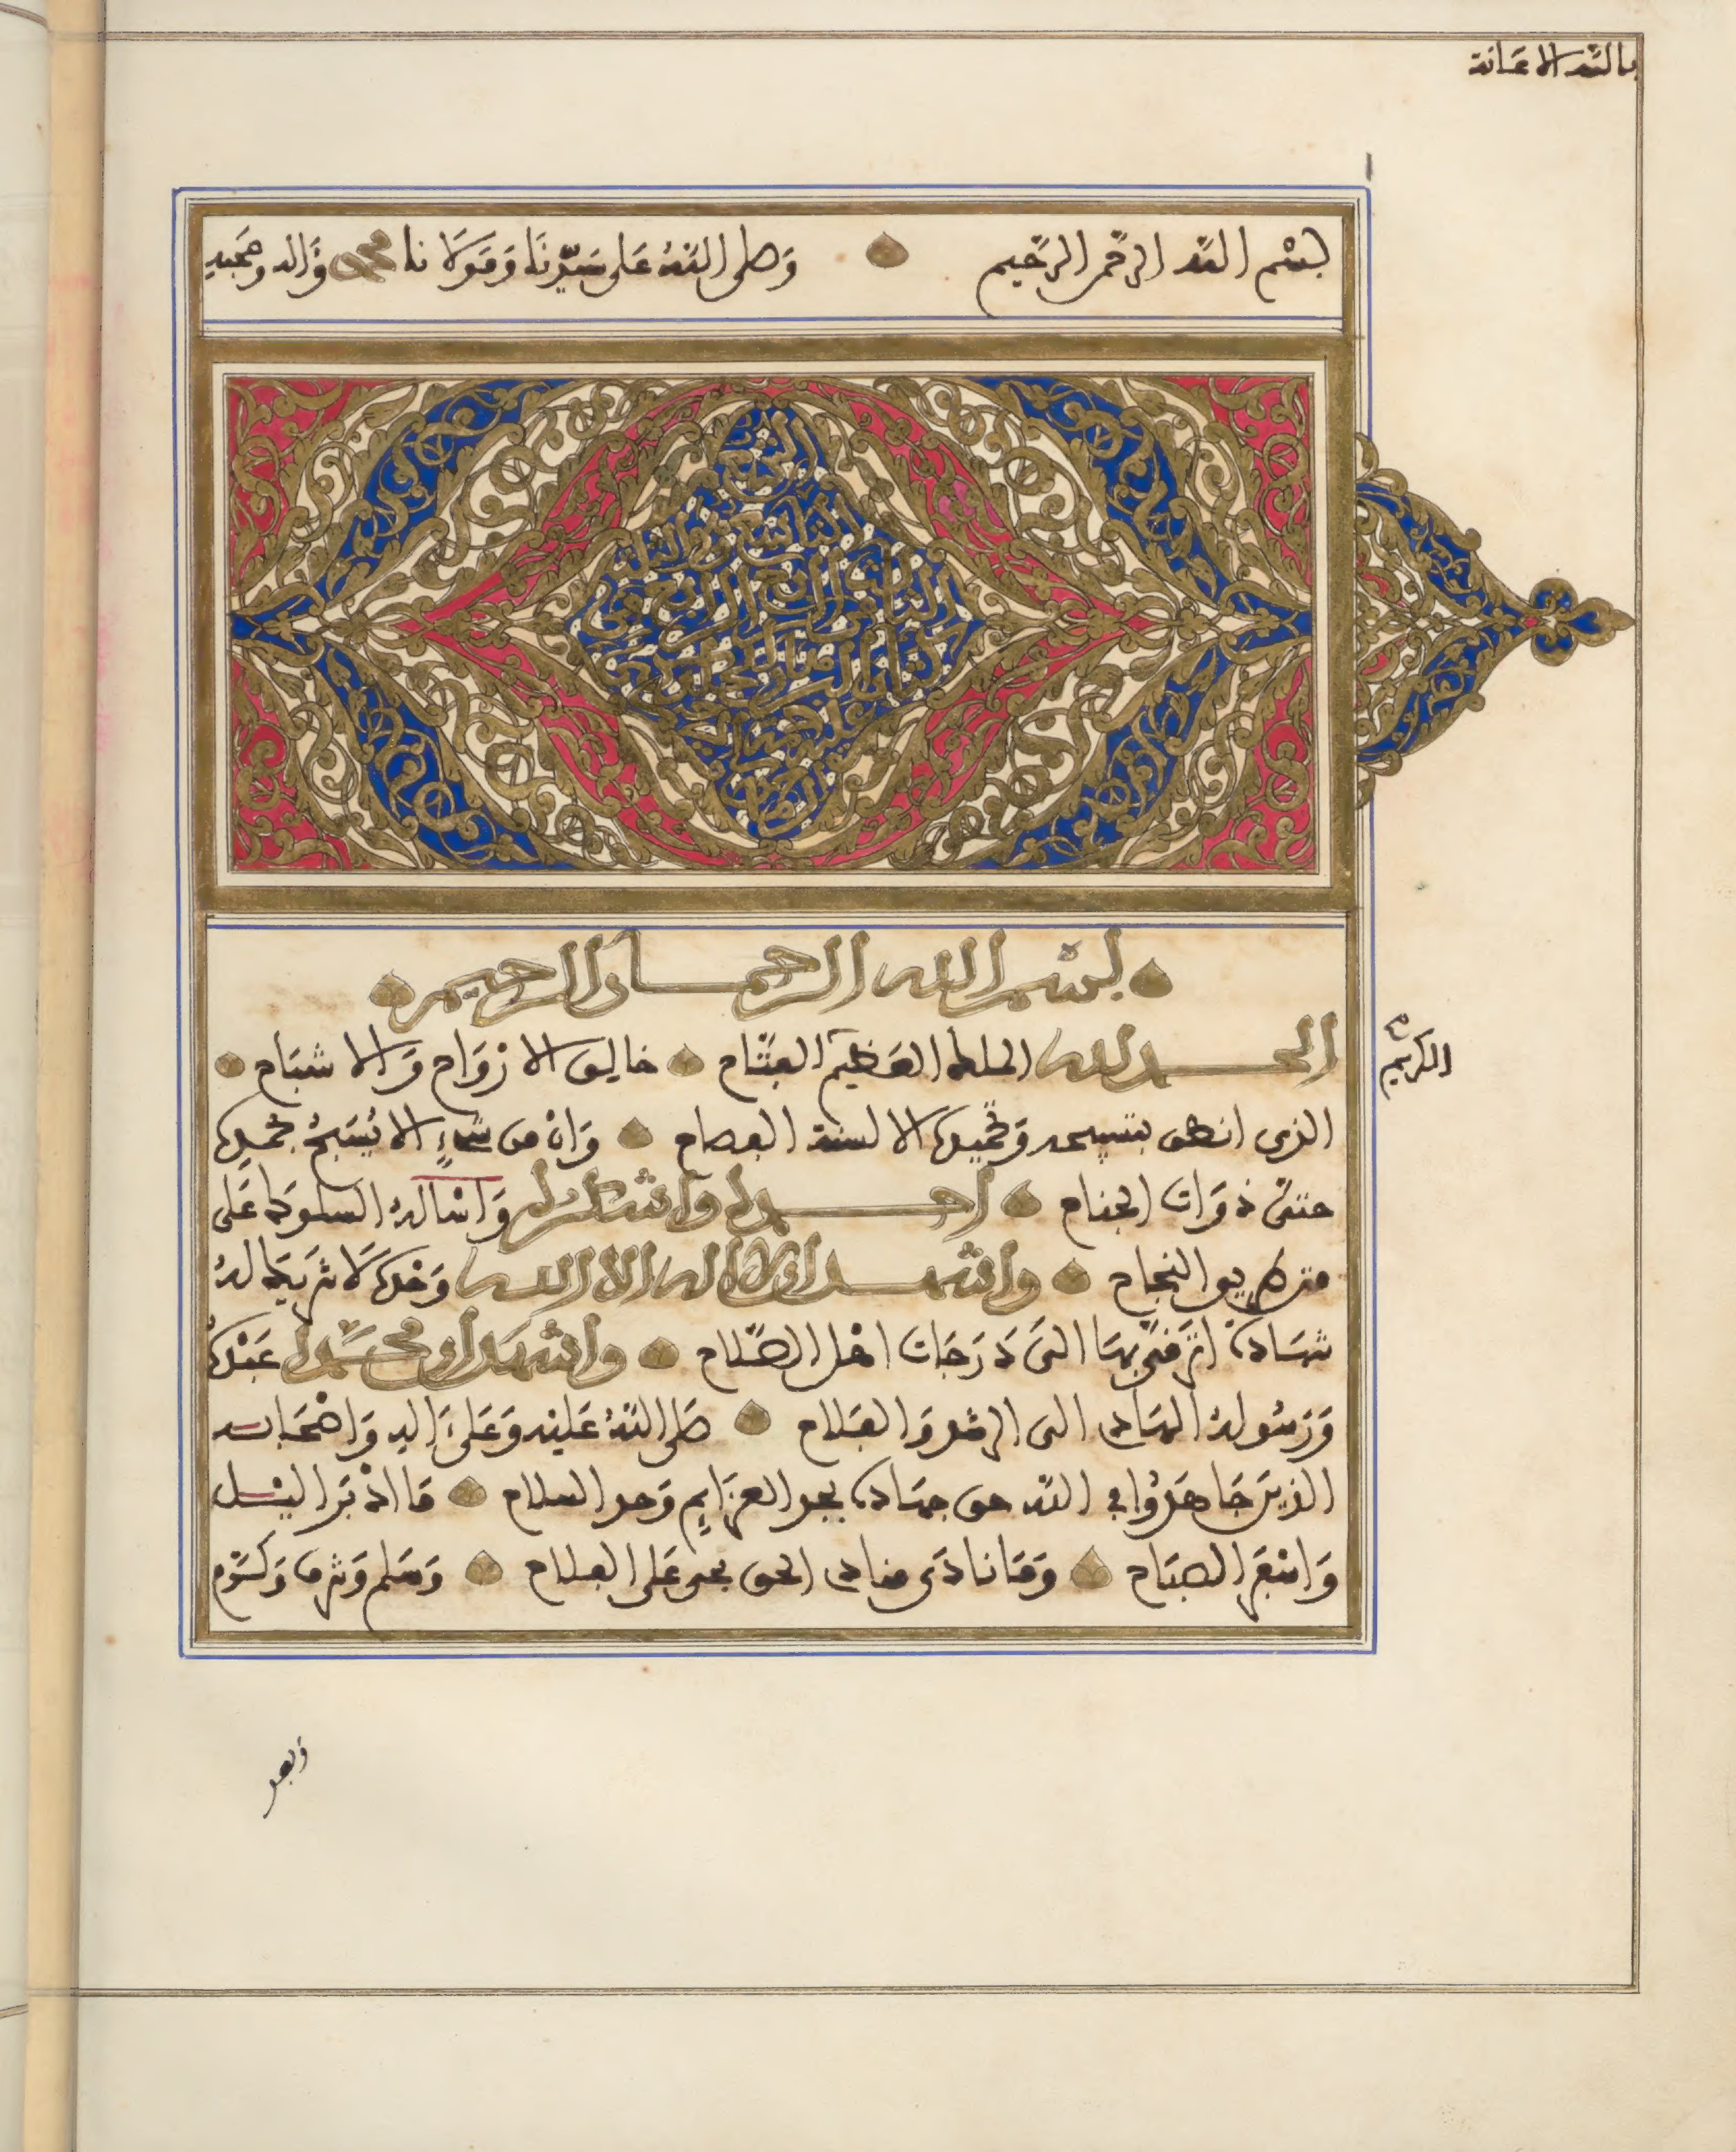 بالله الاعانة
بسم الله الرحمن الرحيم وَصلى اللهُ عَلى سَيّدِنَا وَمَوْلَانا محمد وَءَاله وصَحبهِ
بسم الله الرحمان الرحيم
الحمد لله الملك العَظيم الفتّاح خالق الارْوَاح وَالاشبَاح
الكريم
الذى انطق بتسبيحه وَتحْميده الالسنة الفصاح وَانْ من شىْءٍ الا يُسَبحُ بحمده
حتىّ ذوَات الجناح احمده واشكره وَاسْاله السلوك عَلى
متن طريق النجاح واشهد ان لا اله الا الله وَحْده لَا شريك لهُ
شهادة ارْتقى بهَا الىَ دَرَجَات اهْل الصّلاح واشهد ان محمّدا عبْده
وَرَسُولهُ الهَادى الى الرشد وَالفَلاح صَلى اللهُ عَليْه وَعَلىَ ءَاله وَاصْحَابه
الذين جَاهَدُوا فى الله حق جهَاده بحد العزَايم وَحد السلاح مَا ادْبَر اليْل
وَاسْفَر الصبَاح وَمَا نادَى منادى الحق بحى عَلى الفلاح وَسَلم وَشرف وَكرّم
وَبعد